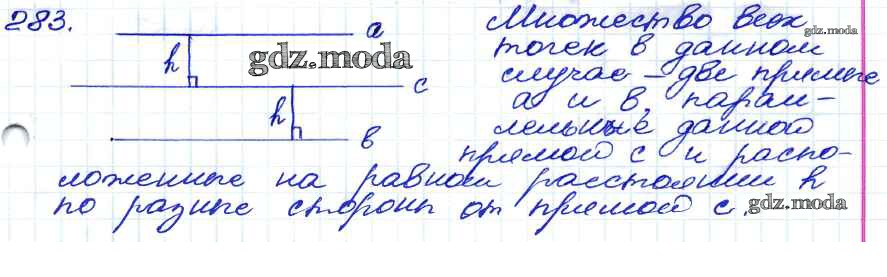 283.
a
h
c
h
в
gdz.moda
Множество всех
точек в данном
случае – две прямые
a и в, парал-
лельные данной
прямой с и распо-
ложенные на равном расстоянии h
по разные стороны от прямой с.
gdz.moda
gdz.moda